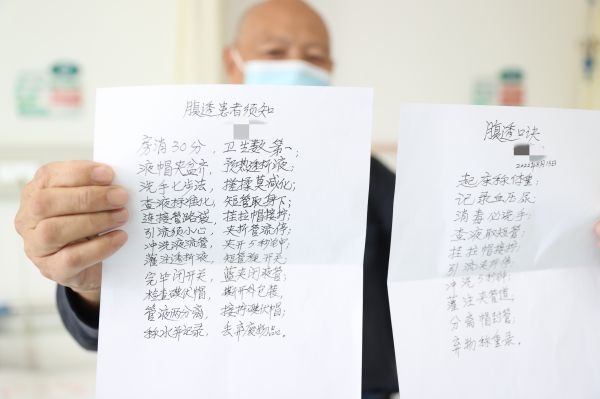 腹透患者须知
房消30分，卫生数第一；
液帽夹盆齐，预热透析液。
洗手七步法，搓揉莫减化；
查液标准化，短管取身下；
连接管路逞，挂拉帽接拧；
引流须小心，夹折管流停。
冲洗液流管，夹开5秒钟；
灌注透析液，短管旋开关。
完毕闭开关，蓝夹闭液管；
检查碘伏帽，撕开外包装，
管液两分离，接拧碘伏帽；
称水并记录，丢弃废物品。
腹透口诀
2022年8月15日
起床称体重；
记录血压尿；
消毒必洗手；
查液取短管；
挂拉帽接拧；
引流夹折停。
冲洗5秒钟；
灌注夹管道，
分离帽封管，
弃物称重录。